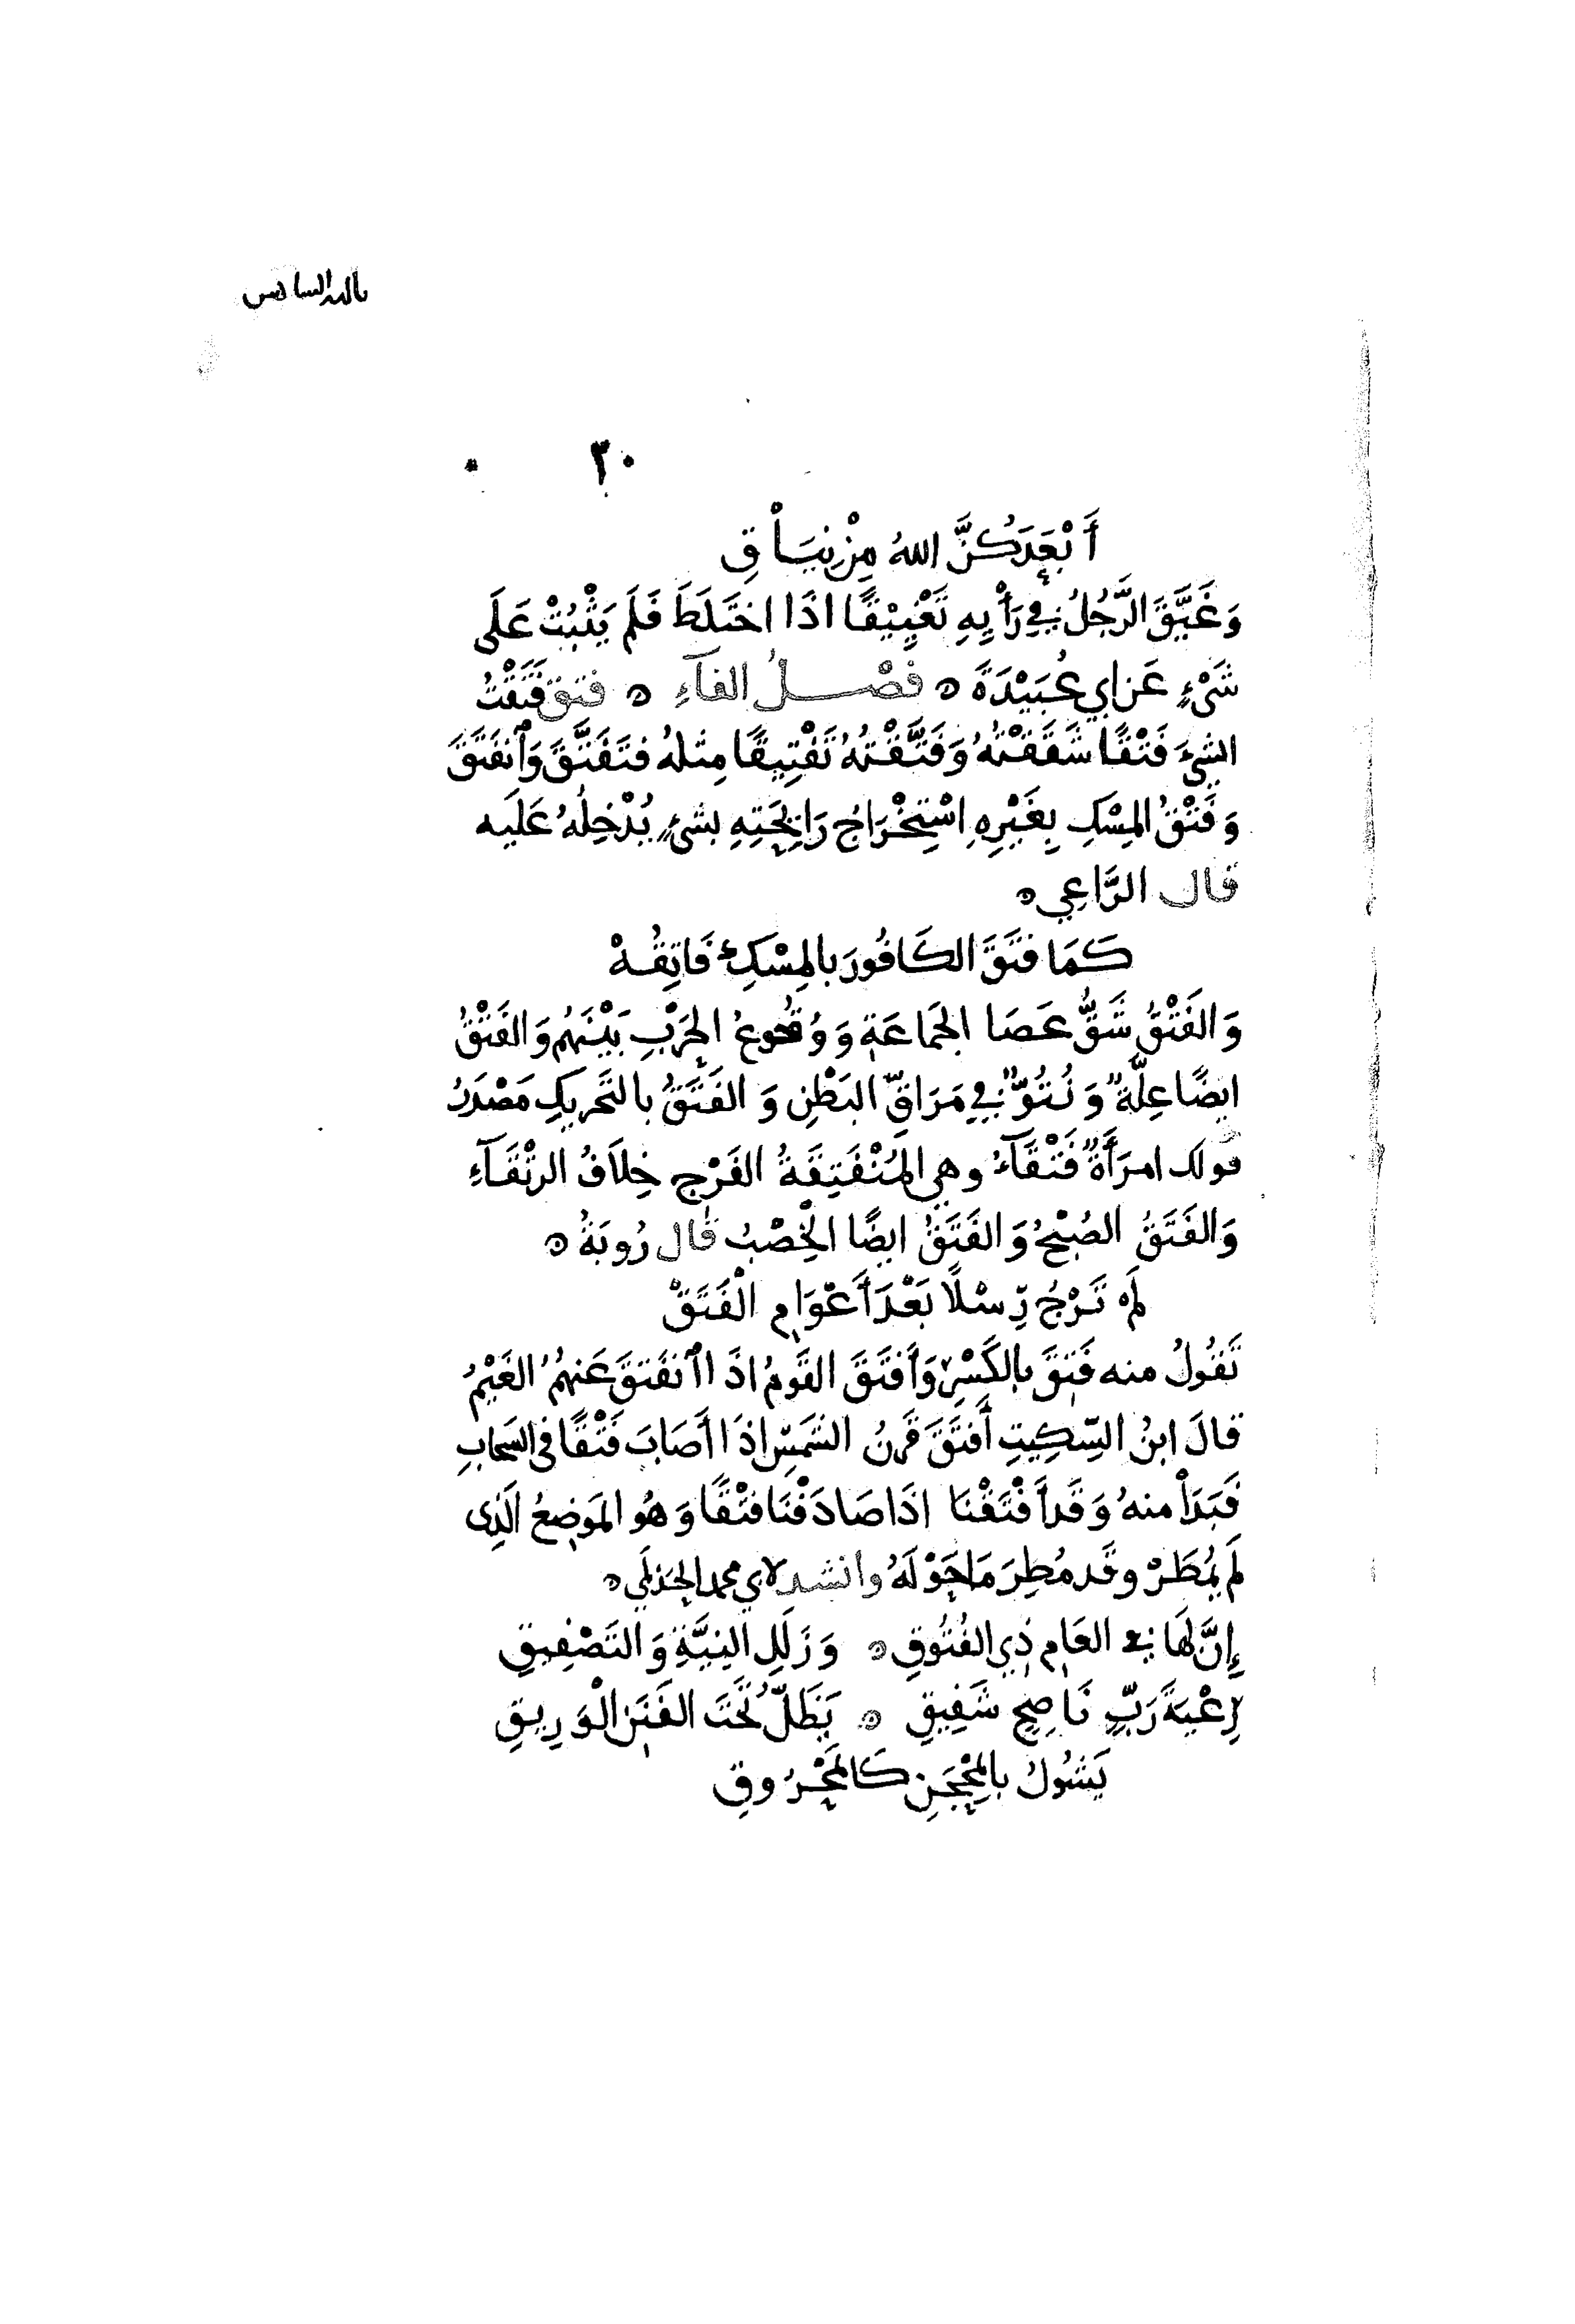 ٣٠
أَبْعَدَكُنَّ اللهُ مِنْ نِيَاْقِ
وَغَيَّقَ الرَّجُلُ فِي رَأْيِهِ تَغْيِيْقًا اذَا اختَلَطَ فَلَم يَثْبُتْ عَلَى
شَىْءٍ عَن ابي عُبَيْدَةَ ه فصْلُ الفآءِ ه فتق فَتَقْتُ
الشىءَ فَتْقًا شَقَقْتُهُ وَفَتَّقْتُهُ تَفْتِيقًا مِثلهُ فتَفَتَّقَ وَٱنفَتَقَ
وَفَتْقُ المِسْكِ بِغَيْرِهِ اسْتِخْرَاجُ رَايِحَتِهِ بشىءٍ يُدْخِلُهُ عَلَيه
قال الرَّاعِي ه
كَمَا فتَقَ الكَافُورَ بالمِسْكِ فَاتِقُهْ
وَالفَتْقُ شَقُّ عَصَا الجَمَاعَةِ وَوُقُوعُ الحَرْبِ بَيْنَهُم وَالفَتْقُ
ايضًا عِلَّةٌ وَنُتُوٌّ فِي مَرَاقِّ البَطْنِ وَالفَتَقُ بالتَحريكِ مَصْدَرُ
قولك امرَأَةٌ فَتْقَآءُ وهي المُنْفَتِقَةُ الفَرْجِ خِلاَفُ الرتْقَآءِ
وَالفَتَقُ الصُبْحُ وَالفَتَقُ ايضًا الخِصْبُ قال رُوبَةُ ه
لَم تَرْجُ رِسْلًا بَعْدَ أَعْوَامِ الْفَتَقْ
تَقُولُ منه فَتِقَ بالكَسْرِ وَأَفتَقَ القَومُ اذَا ٱنفَتَقَ عَنهُمُ الغَيْمُ
قالَ ابنُ السِّكِيتِ أَفتَقَ قَرنُ الشَمسِ اذَا أَصَابَ فَتْقًا فى السَحابِ
فَبَدَأَ منهُ وَقَد أَفْتَقْنَا اذَا صَادَفْنَا فتْقًا وَهُو المَوضِعُ الَذِى
لَم يُمْطَرْ وقَد مُطِرَ مَا حَوْلَهُ وانشد لابي محمد الحَذلَمِي ه
إِنَّ لَهَا فِي العَامِ ذِي الفُتُوقِ ه وَزَلَلِ النِيَّةِ وَالتَصْفِيقِ
رِعْيَةَ رَبٍّ نَاصِحٍ شَفِيقِ ه يَظَلُّ تَحْتَ الفَنَنِ الْوَرِيقِ
يَشُولُ بالمِحْجَنِ كَالمَحْرُوقِ